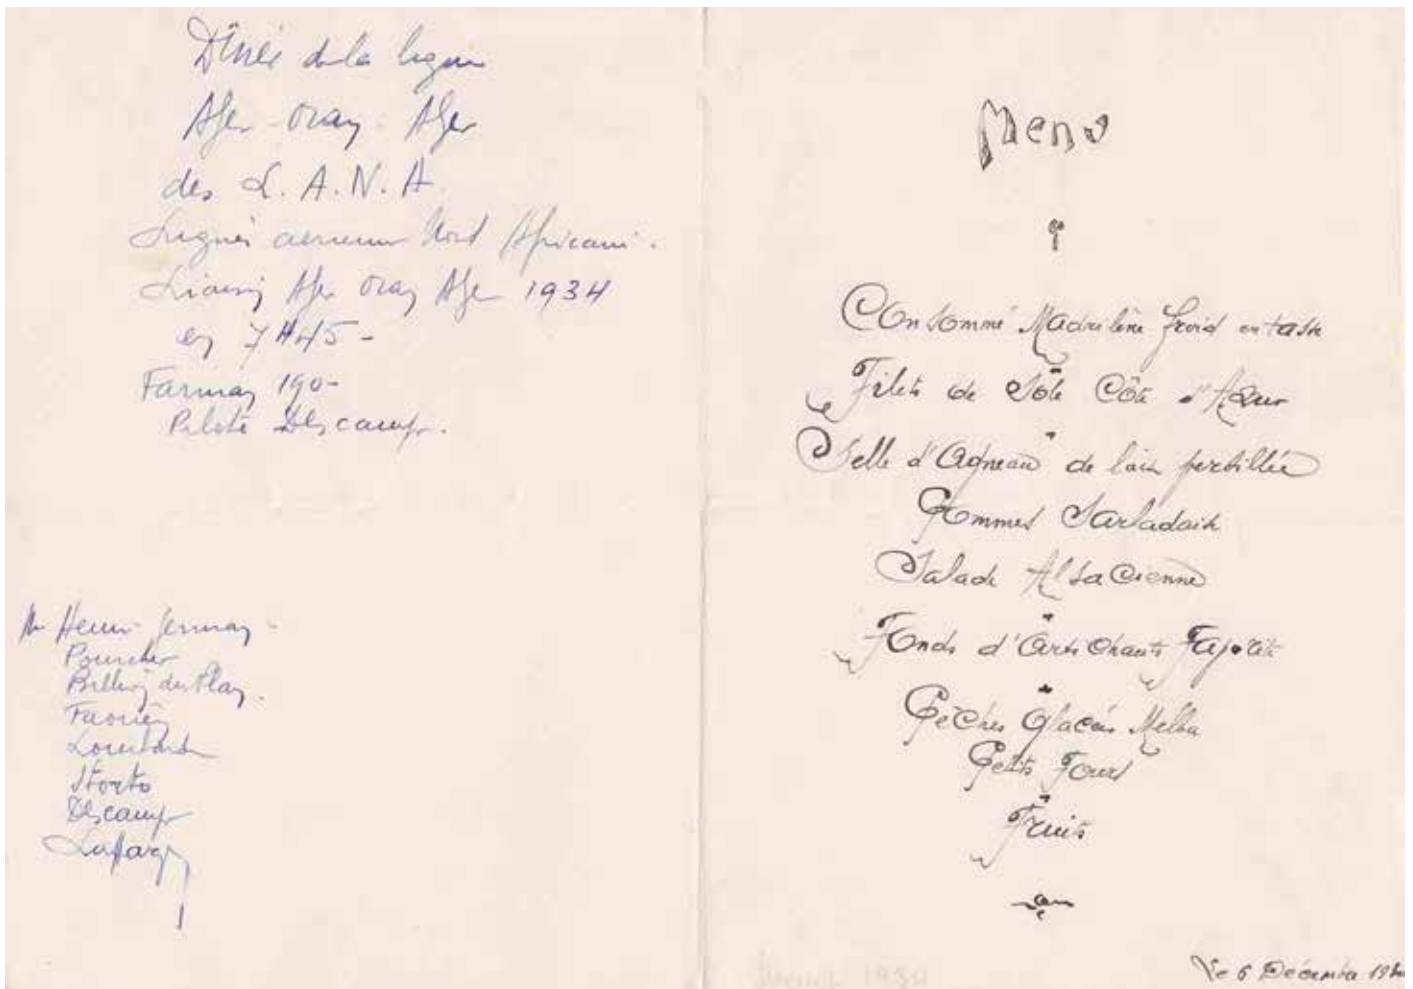 Dîner de la ligne
Alger - Oran - Alger
des L. A. N. A.
Lignes aeriennes Nord Africaines.
Liaison Alger Oran Alger 1934
en 7H45 -
Farman 190 -
Pilote Descamps.
Mr Henri Germain -
Pourcher
Favrier
Lombard
Storto
Descamps
Menu
Consommé Madrilène froid en tasse
Filets de Sole Côte d'Azur
Selle d'Agneau de lait persillée
Pommes Sarladaise
Salade Alsacienne
Fonds d'Artichauts
Pêches Glacées Melba
Petits Fours
Fruits
1934
Le 6 Décembre